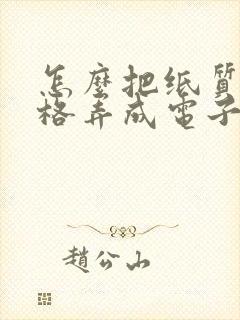 怎麼把纸質
格弄成電子
趙公山